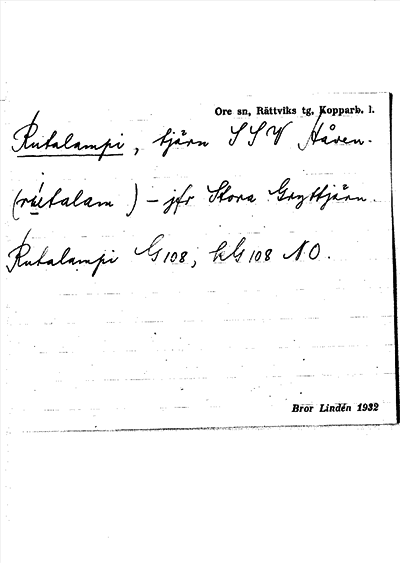 Ore sn, Rättviks tg, Kopparb. l.
Rutalampi, tjärn SSV Håven.
(rútalam) – jfr Stora Gryttjärn.
Rutalampi G108, kG108 NO.
Bror Lindén 1932